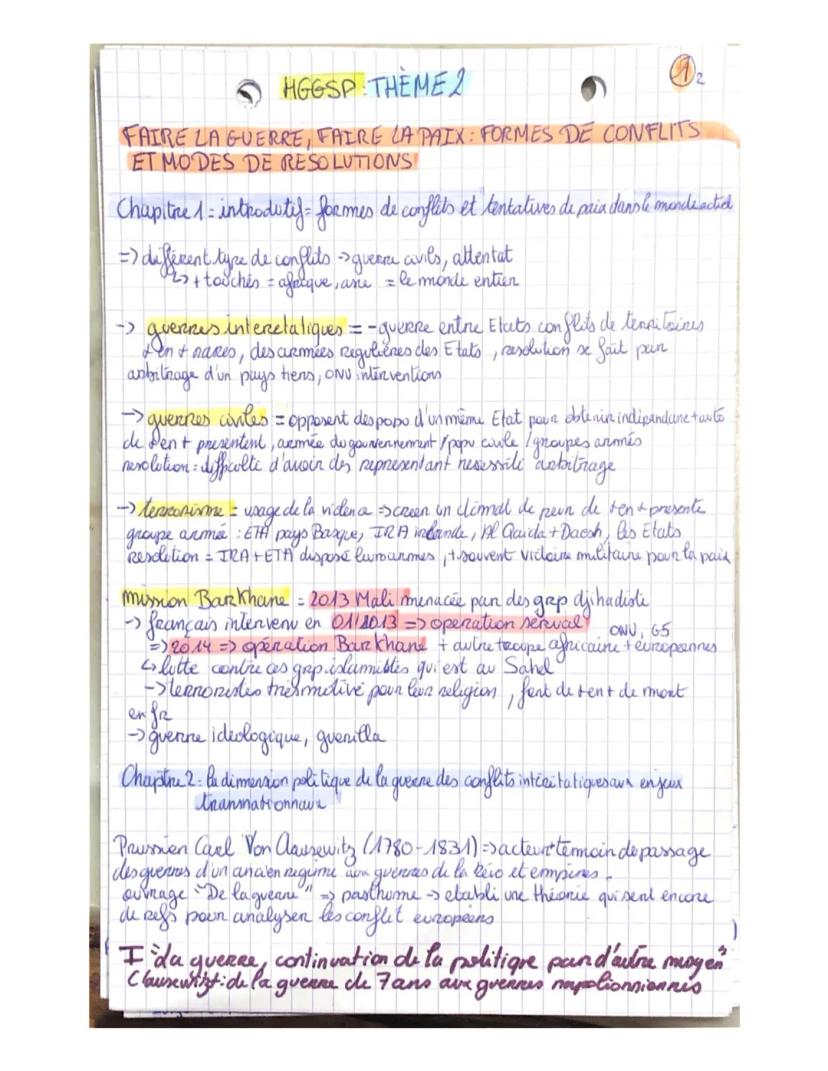 HGGSP : THÈME 2
1 2
FAIRE LA GUERRE, FAIRE LA PAIX : FORMES DE CONFLITS
ET MODES DE RESOLUTIONS
Chapitre 1 : introdutif = formes de conflits et tentatives de paix dans le monde actuel
=> différent type de conflits -> guerre civils, attentat
↳ + touchés = afrique, asie = le monde entier
-> guerres interetatiques = - guerre entre Etats conflits de territoires
de en + rares, des armées regulières des Etats, resolution se fait par
arbitrage d'un pays tiers, ONU interventions
-> guerres civiles = opposent des popu d'un même Etat pour obtenir indépendance + auto
de + en + presentent, armée du gouvernement / popu civile / groupes armés
resolution = difficulté d'avoir des representant necessité arbitrage
-> terrorisme = usage de la violence => creer un climat de peur de + en + presente
groupe armée : ETA pays Basque, IRA irlande, Al Qaida + Daesh, les Etats
resolution = IRA + ETA disposé leurs armes, + souvent victoire militaire pour la paix
mission Barkhane = 2013 Mali menacée par des grp djihadiste
-> français intervenu en 01/2013 => operation serval
ONU, G5
=> 2014 => opération Barkhane + autre troupe africaine + européennes
↳ lutte contre ces grp islamistes qui est au Sahel
-> terroristes très motivé pour leur religion, font de + en + de mort
en fr
-> guerre idéologique, guerilla
Chapitre 2 : la dimension politique de la guerre des conflits interétatiques aux enjeux
transnationnaux
Prussien Carl Von Clausewitz (1780-1831) => acteur + temoin de passage
des guerres d'un ancien regime aux guerres de la révo et empires.
ouvrage "De la guerre" => posthume -> etabli une théorie qui sert encore
de refs pour analyser les conflit européens
I "la guerre, continuation de la politique par d'autre moyen"
Clausewitz : de la guerre de 7 ans aux guerres napoléonniennes